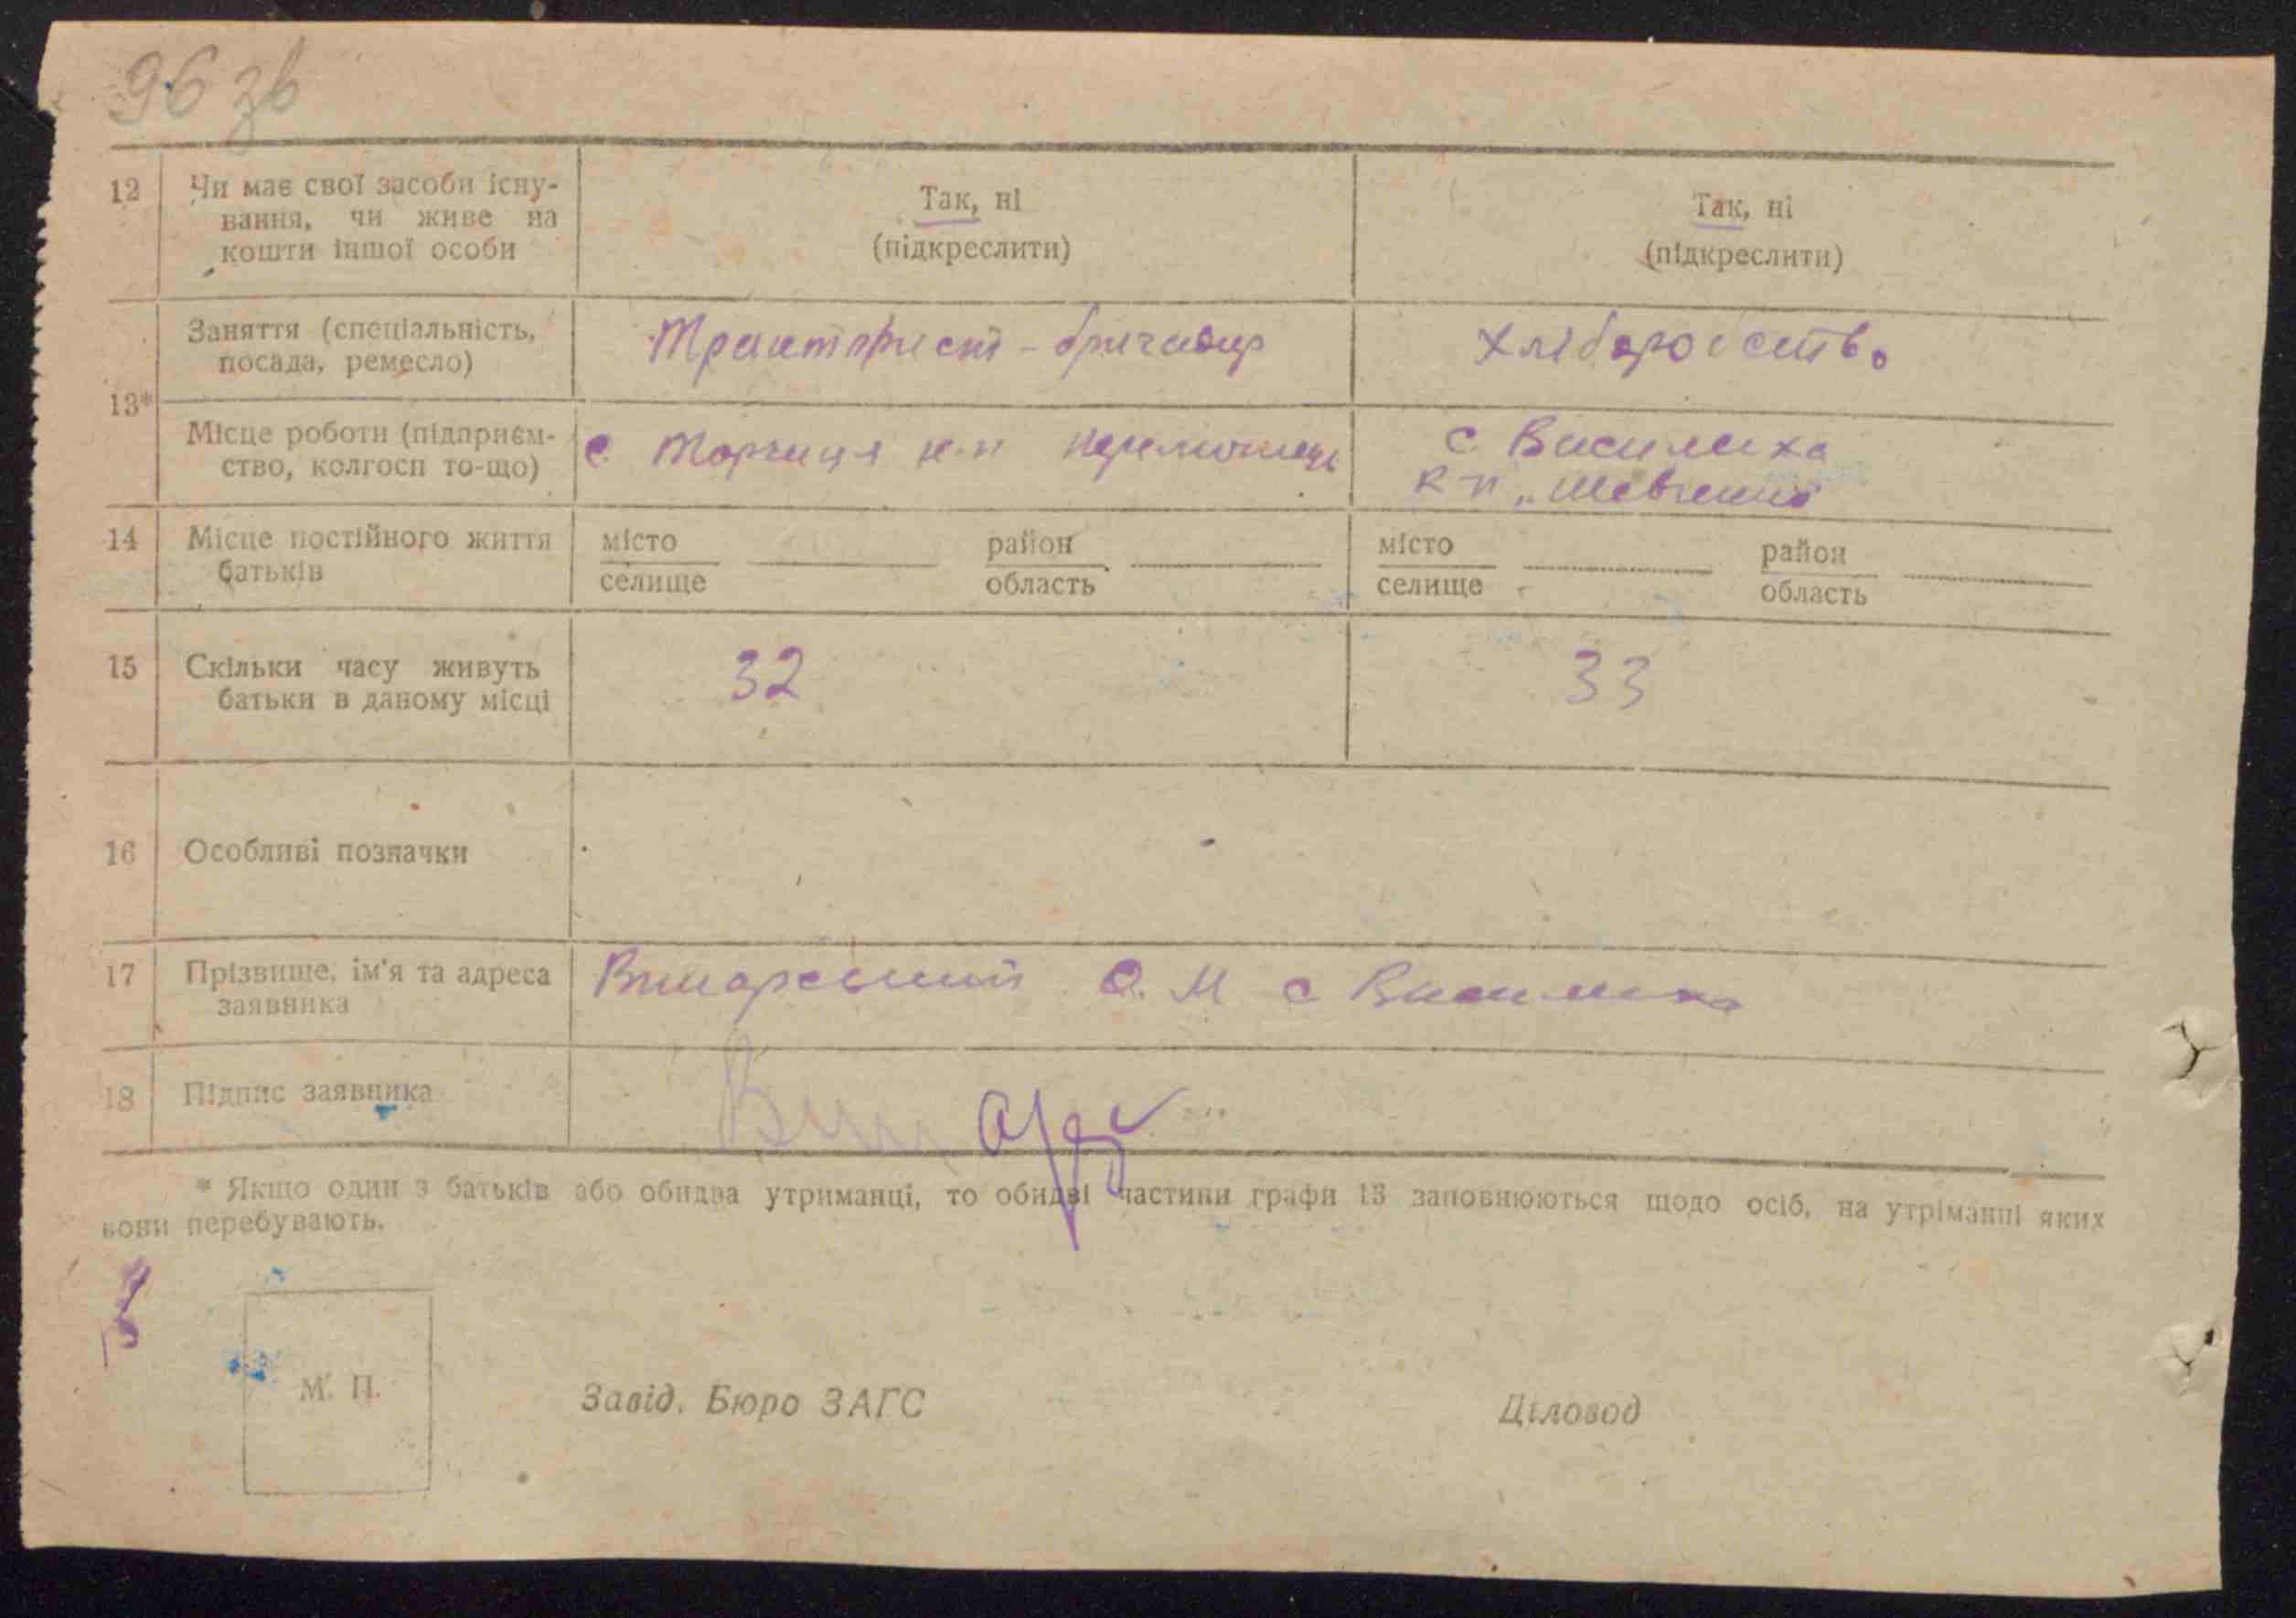 96 зв
12 Чи має свої засоби існу-
вання, чи живе на
кошти іншої особи
Так, ні
(підкреслити)
Так, ні
(підкреслити)
13*
Заняття (спеціальність,
посада, ремесло)
Тракторист-бригадир
Хліборобство
Місце роботи (підприєм-
ство, колгосп то-що)
с. Торчиця к-п
с. Василиха
к-п „Шевченко
14 Місце постійного життя
батьків
місто
селище
район
область
місто
селище
район
область
15 Скільки часу живуть
батьки в даному місці
32
33
16 Особливі позначки
17 Прізвище, ім'я та адреса
заявника
О. М с Василиха
18 Підпис заявника
* Якщо один з батьків або обидва утриманці, то обидві частини графи 13 заповнюються щодо осіб, на утріманні яких
вони перебувають.
М. П.
Завід. Бюро ЗАГС
Діловод